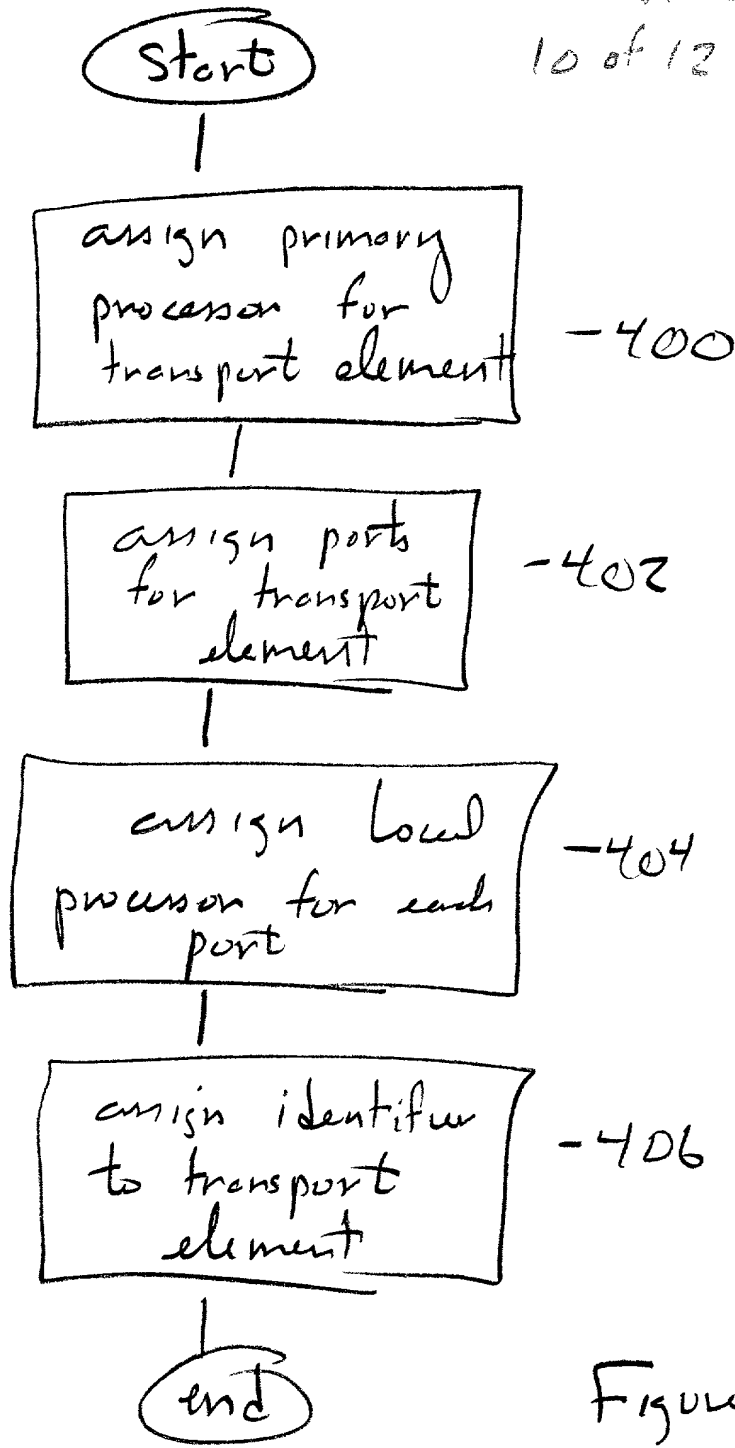 Start
10 of 12
assign primary
processor for
transport element
-400
assign ports
for transport
element
-402
assign local
processor for each
port
-404
assign identifier
to transport
element
-406
end
Figure